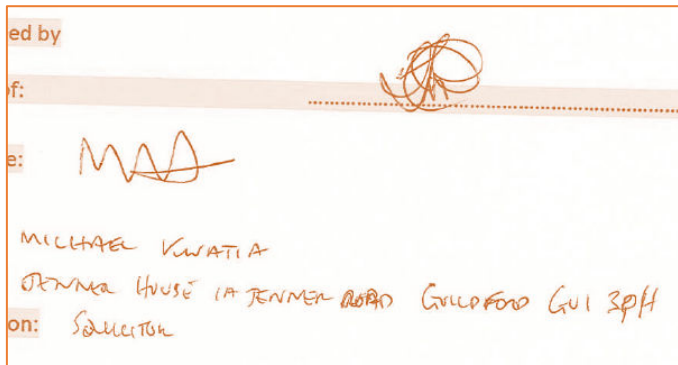 ed by
of:
e:
MICHAEL KWATIA
JENNER HOUSE 1A JENNER ROAD GUILDFORD GU1 3PH
on: SOLICITOR